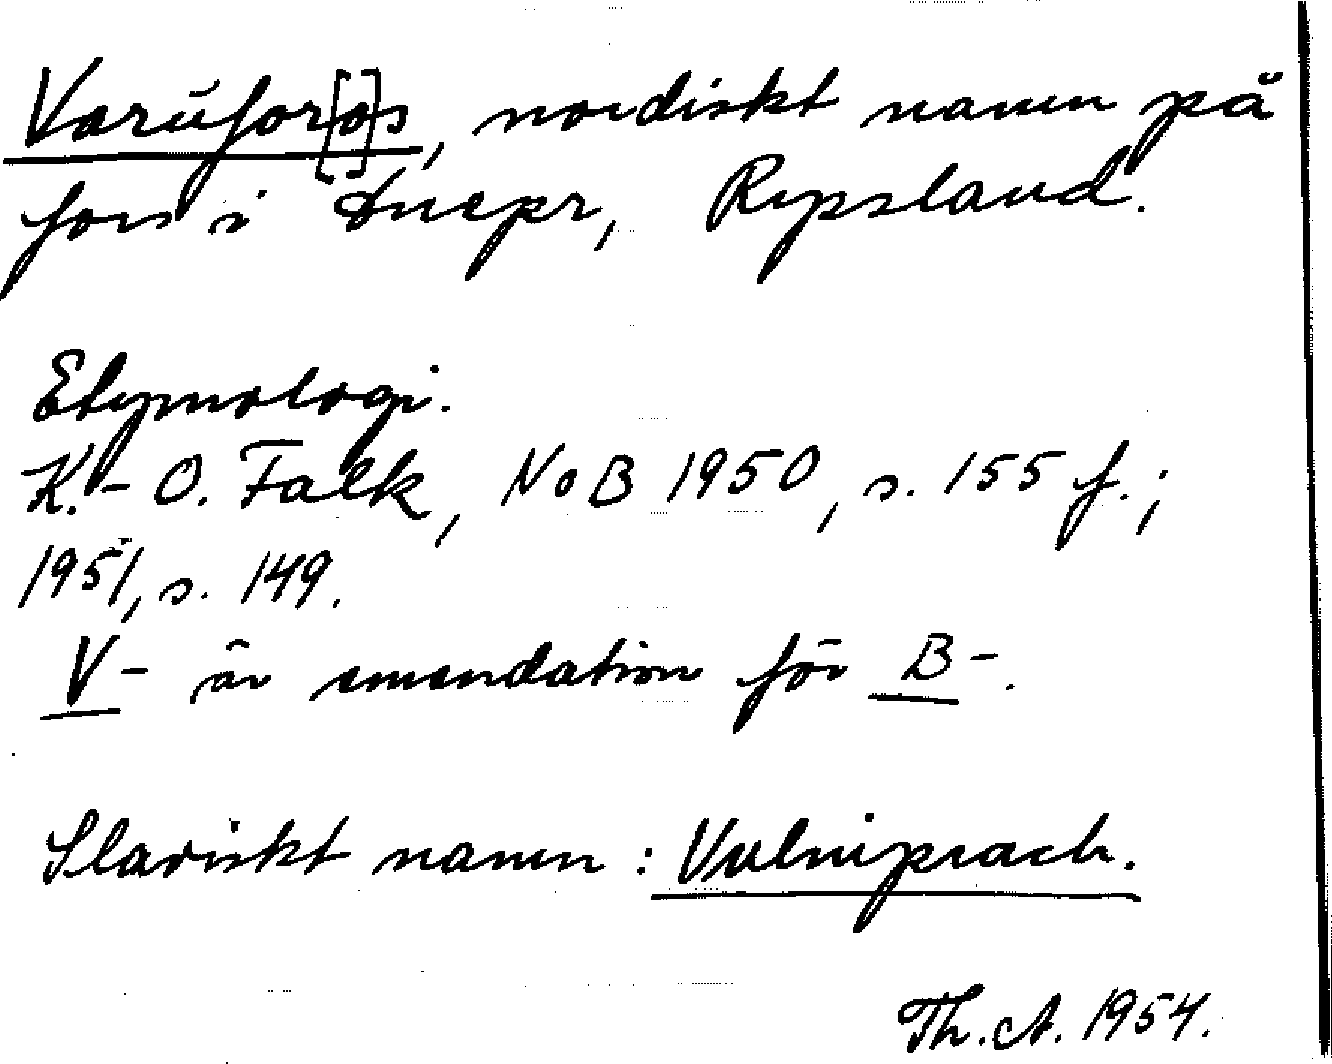 Varūfor[o]s, nordiskt namn på
fors i Dnepr, Ryssland.
Etymologi.
K.-O. Falk, NoB 1950, s. 155 f.;
1951, s. 149.
V- är emendation för B-.
Slaviskt namn: Vulniprach.
Th. A. 1954.